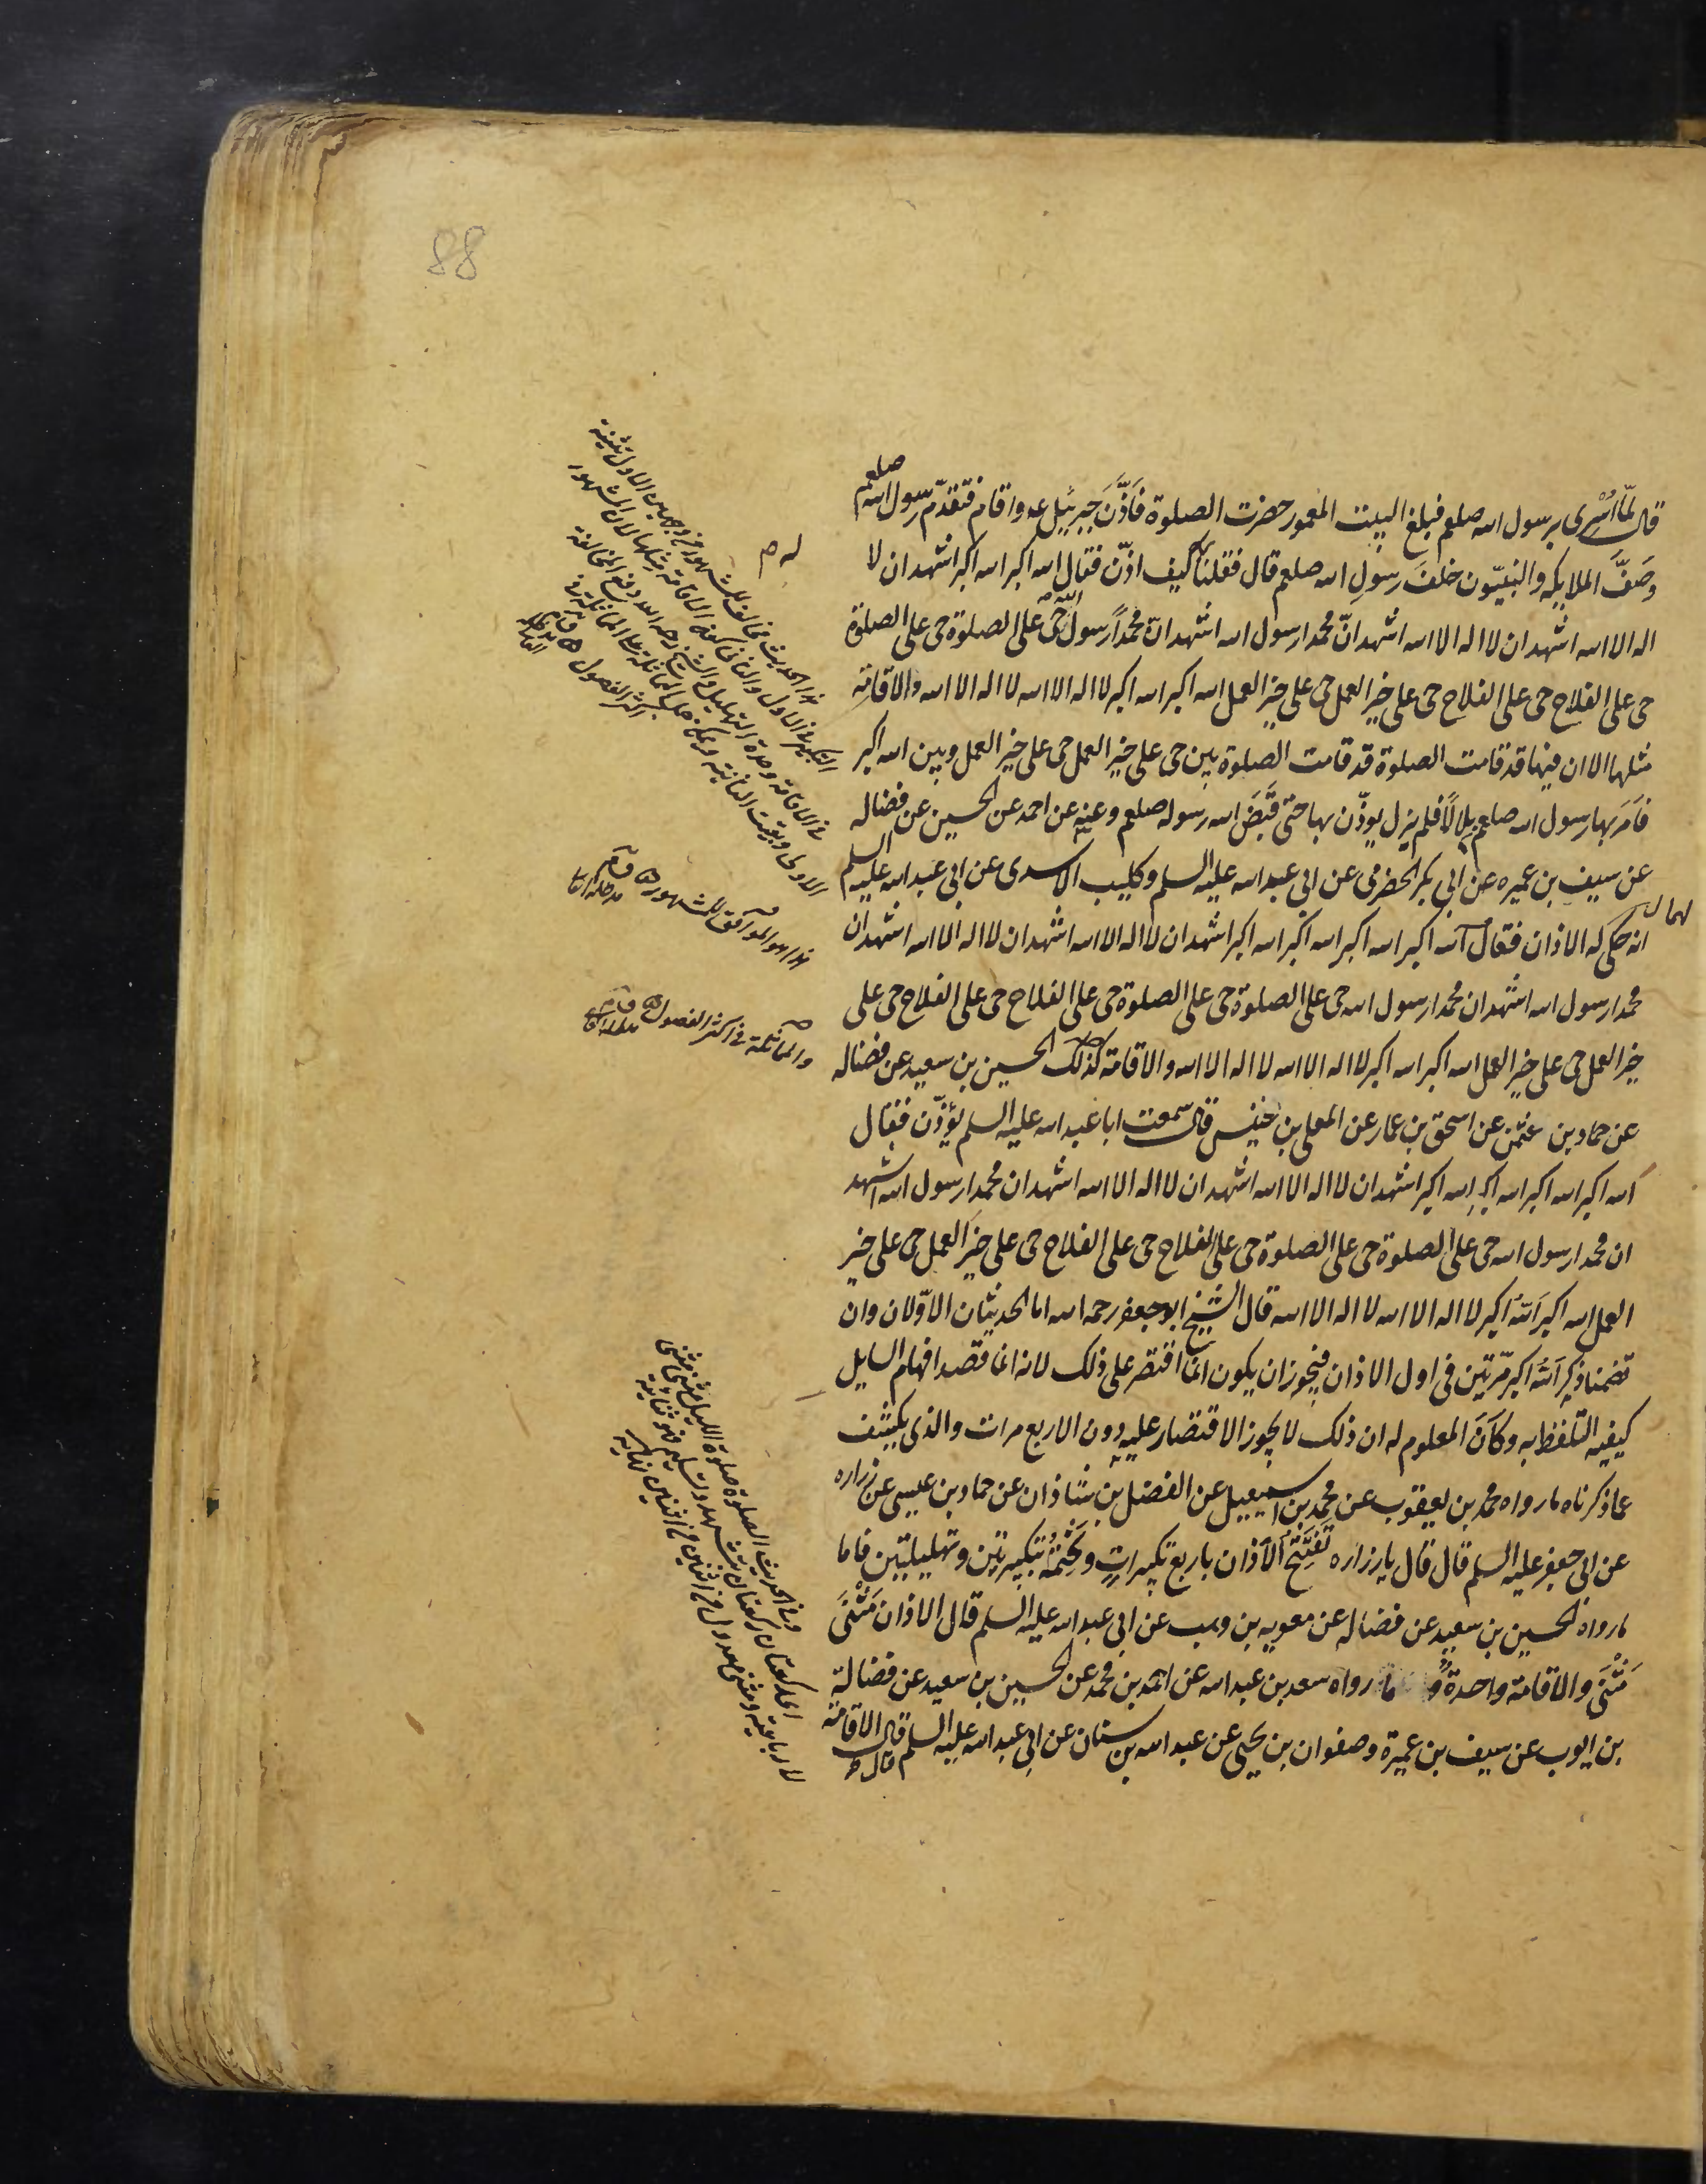 88
قال لمّا اُسْرِى برسول الله صلعم فبلغ البيت المعمور حضرت الصلوة فَاَذَّنَ جبرئيل عه واقام فتقدّم رسول الله صلعم
وصَفَّ الملايكه والنبيّون خلفَ رسولِ الله صلعم قال فقلنا كيف اذّن فقال الله اكبر الله اكبر اشهد ان لا
اله الا الله اشهد ان لا اله الا الله اشهد انّ محمدا رسول الله اشهد انّ محمداً رسولُ اللّه حى على الصلوة حى على الصلوة
حى على الفلاح حى على الفلاح حى على خير العمل حى على خير العمل الله اكبر الله اكبر لا اله الا الله لا اله الا الله والاقامة
مثلها الا ان فيها قد قامت الصلوة قد قامت الصلوة بين حى على خير العمل حى على خير العمل وبين الله اكبر
فَاَمَرَ بها رسول الله صلعم بِلالًا فلم يزل يوذّن بها حتى قَبَضَ الله رسوله صلعم وعنه عن احمد عن الحسين عن فضاله
عن سيف بن عميره عن ابى بكر الحضرمى عن ابى عبد الله عليه السلم وكليب الاسدى عن ابى عبد الله عليه السلم
انه حكى لهما الاذان فقال الله اكبر الله اكبر الله اكبر الله اكبر اشهد ان لا اله الا الله اشهد ان لا اله الا الله اشهد ان
محمدا رسول الله اشهد ان محمدا رسول الله حى على الصلوة حى على الصلوة حى على الفلاح حى على الفلاح حى على
خير العمل حى على خير العمل الله اكبر الله اكبر لا اله الا الله لا اله الا الله والاقامة كذلك الحسين بن سعيد عن فضاله
عن حماد بن عثمن عن اسحق بن عمار عن المعلى بن خنيس قال سمعت ابا عبد الله عليه السلم يُؤذّن فقال
الله اكبر الله اكبر الله اكبر الله اكبر اشهد ان لا اله الا الله اشهد ان لا اله الا الله اشهد ان محمدا رسول الله اشهد
ان محمدا رسول الله حى على الصلوة حى على الصلوة حى على الفلاح حى على الفلاح حى على خير العمل حى على خير
العمل الله اكبر اَللّهُ اكبر لا اله الا الله لا اله الا الله قال الشيخ ابو جعفر رحمه الله اما الحديثان الاوّلان وان
تضمنا ذِكر اَللّهُ اكبر مرّتين فى اول الاذان فيجوز ان يكون انما اقتصر على ذلك لانه انما قصد افهام السايل
كيفيه التلفظ به وكَاَنَ المعلوم له ان ذلك لا يجوز الاقتصار عليه دون الاربع مرات والذى يكشف
عما ذكرناه ما رواه محمد بن يعقوب عن محمد بن اسمعيل عن الفضل بن شاذان عن حماد بن عيسى عن زراره
عن ابى جعفر عليه السلم قال قال يا زراره تَفتَتِحُ الاَذان باربع تكبيراتٍ وتَختِمُهُ بتكبيرتين وتهليلتين فاما
ما رواه الحسين بن سعيد عن فضاله عن معويه بن وهب عن ابى عبد الله عليه السلم قال الاذان مَثْنَى
مَثْنَى والاقامة واحدةً و ما رواه سعد بن عبد الله عن احمد بن محمد عن الحسين بن سعيد عن فضالة
بن ايوب عن سيف بن عميرة وصفوان بن يحيى عن عبد الله بن سنان عن ابى عبد الله عليه السلم قال الاقامة
هذا الحديث مخالف للمشهور من وجهين الاول تثنية
التكبير فى الاول والثانى كون الاقامة مثلها لان المشهور
فى الاقامة وحدة التهليل والشيخ رحمه الله دفع المخالفة
الاولى وبقيت الثانية ويمكن حمل المماثلة على المماثلة فى
اكثر الفصول
هذا هو الموافق للمشهور
والمماثلة فى اكثر الفصول
وفى الحديث الصلوة صلوة الليل مثنى مثنى
اى ركعتان ركعتان بتشهد وتسليم فهو ثنائية
لا رباعية ومثنى معدول من اثنين اثنين